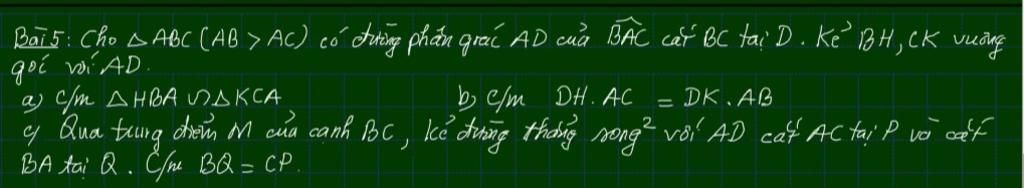 Bài 5: Cho △ABC (AB > AC) có đường phân giác AD của BAC cắt BC tại D. Kẻ BH, CK vuông
góc với AD.
a) C/m △HBA ∽ △KCA b) C/m DH. AC = DK. AB
c) Qua trung điểm M của cạnh BC, kẻ đường thẳng song² với AD cắt AC tại P và cắt
BA tại Q. C/m BQ = CP.